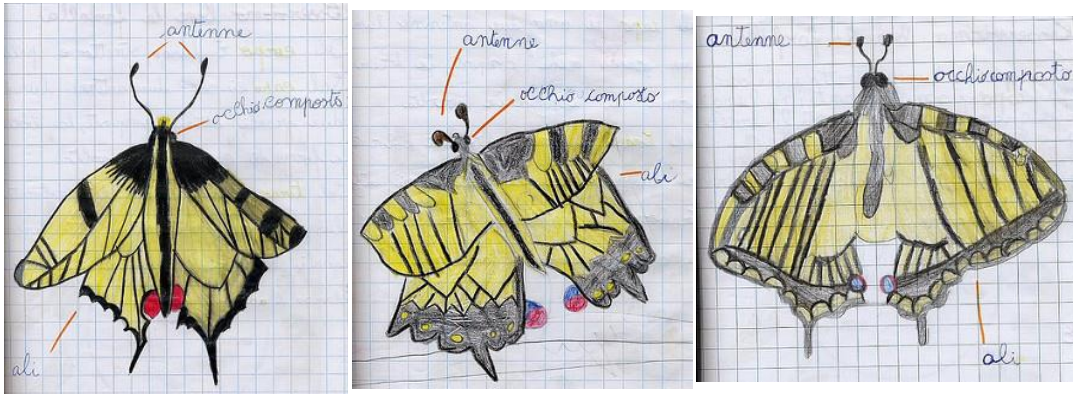 antenne
occhio composto
ali
antenne
occhio composto
ali
antenne
occhio composto
ali